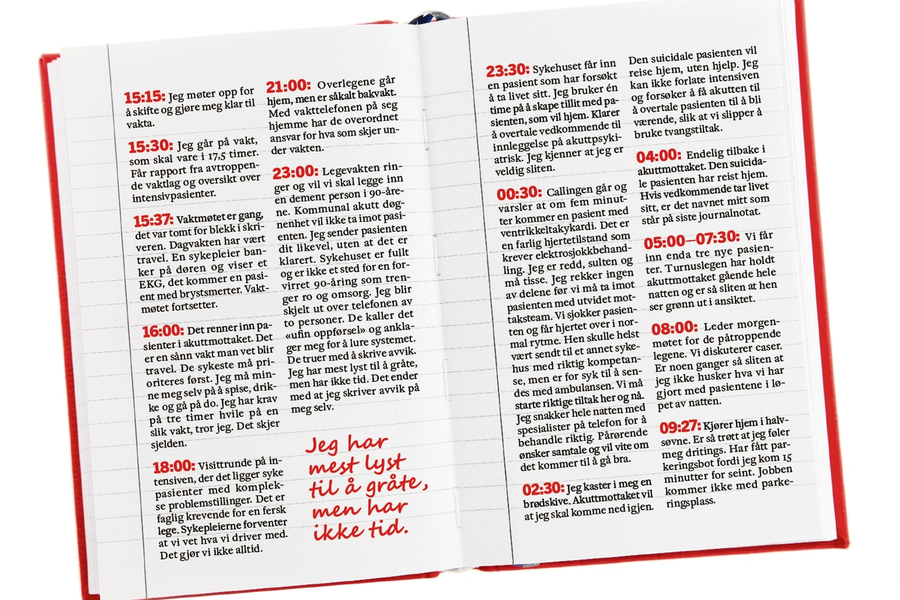 15:15: Jeg møter opp for
å skifte og gjøre meg klar til
vakta.
15:30: Jeg går på vakt,
som skal vare i 17,5 timer.
Får rapport fra avtroppen-
de vaktlag og oversikt over
intensivpasienter.
15:37: Vaktmøtet er gang,
det var tomt for blekk i skri-
veren. Dagvakten har vært
travel. En sykepleier ban-
ker på døren og viser et
EKG, det kommer en pasi-
ent med brystsmerter. Vakt-
møtet fortsetter.
16:00: Det renner inn pa-
sienter i akuttmottaket. Det
er en sånn vakt man vet blir
travel. De sykeste må pri-
oriteres først. Jeg må min-
ne meg selv på å spise, drik-
ke og gå på do. Jeg har krav
på tre timer hvile på en
slik vakt, tror jeg. Det skjer
sjelden.
18:00: Visittrunde på in-
tensiven, der det ligger syke
pasienter med komplek-
se problemstillinger. Det er
faglig krevende for en fersk
lege. Sykepleierne forventer
at vi vet hva vi driver med.
Det gjør vi ikke alltid.
21:00: Overlegene går
hjem, men er såkalt bakvakt.
Med vakttelefonen på seg
hjemme har de overordnet
ansvar for hva som skjer un-
der vakten.
23:00: Legevakten rin-
ger og vil vi skal legge inn
en dement person i 90-åre-
ne. Kommunal akutt døg-
nenhet vil ikke ta imot pasi-
enten. Jeg sender pasienten
dit likevel, uten at det er
klarert. Sykehuset er fullt
og er ikke et sted for en for-
virret 90-åring som tren-
ger ro og omsorg. Jeg blir
skjelt ut over telefonen av
to personer. De kaller det
«ufin oppførsel» og ankla-
ger meg for å lure systemet.
De truer med å skrive avvik.
Jeg har mest lyst til å gråte,
men har ikke tid. Det ender
med at jeg skriver avvik på
meg selv.
Jeg har
mest lyst
til å gråte,
men har
ikke tid.
23:30: Sykehuset får inn
en pasient som har forsøkt
å ta livet sitt. Jeg bruker én
time på å skape tillit med pa-
sienten, som vil hjem. Klarer
å overtale vedkommende til
innleggelse på akuttpsyki-
atrisk. Jeg kjenner at jeg er
veldig sliten.
00:30: Callingen går og
varsler at om fem minut-
ter kommer en pasient med
ventrikkeltakykardi. Det er
en farlig hjertetilstand som
krever elektrosjokkbehand-
ling. Jeg er redd, sulten og
må tisse. Jeg rekker ingen
av delene før vi må ta imot
pasienten med utvidet mot-
taksteam. Vi sjokker pasien-
ten og får hjertet over i nor-
mal rytme. Hen skulle helst
vært sendt til et annet syke-
hus med riktig kompetan-
se, men er for syk til å sen-
des med ambulansen. Vi må
starte riktige tiltak her og nå.
Jeg snakker hele natten med
spesialister på telefon for å
behandle riktig. Pårørende
ønsker samtale og vil vite om
det kommer til å gå bra.
02:30: Jeg kaster i meg en
brødskive. Akuttmottaket vil
at jeg skal komme ned igjen.
Den suicidale pasienten vil
reise hjem, uten hjelp. Jeg
kan ikke forlate intensiven
og forsøker å få akutten til
å overtale pasienten til å bli
værende, slik at vi slipper å
bruke tvangstiltak.
04:00: Endelig tilbake i
akuttmottaket. Den suicida-
le pasienten har reist hjem.
Hvis vedkommende tar livet
sitt, er det navnet mitt som
står på siste journalnotat.
05:00–07:30: Vi får
inn enda tre nye pasien-
ter. Turnuslegen har holdt
akuttmottaket gående hele
natten og er så sliten at hen
ser grønn ut i ansiktet.
08:00: Leder morgen-
møtet for de påtroppende
legene. Vi diskuterer caser.
Er noen ganger så sliten at
jeg ikke husker hva vi har
gjort med pasientene i lø-
pet av natten.
09:27: Kjører hjem i halv-
søvne. Er så trøtt at jeg føler
meg dritings. Har fått par-
keringsbot fordi jeg kom 15
minutter for seint. Jobben
kommer ikke med parke-
ringsplass.